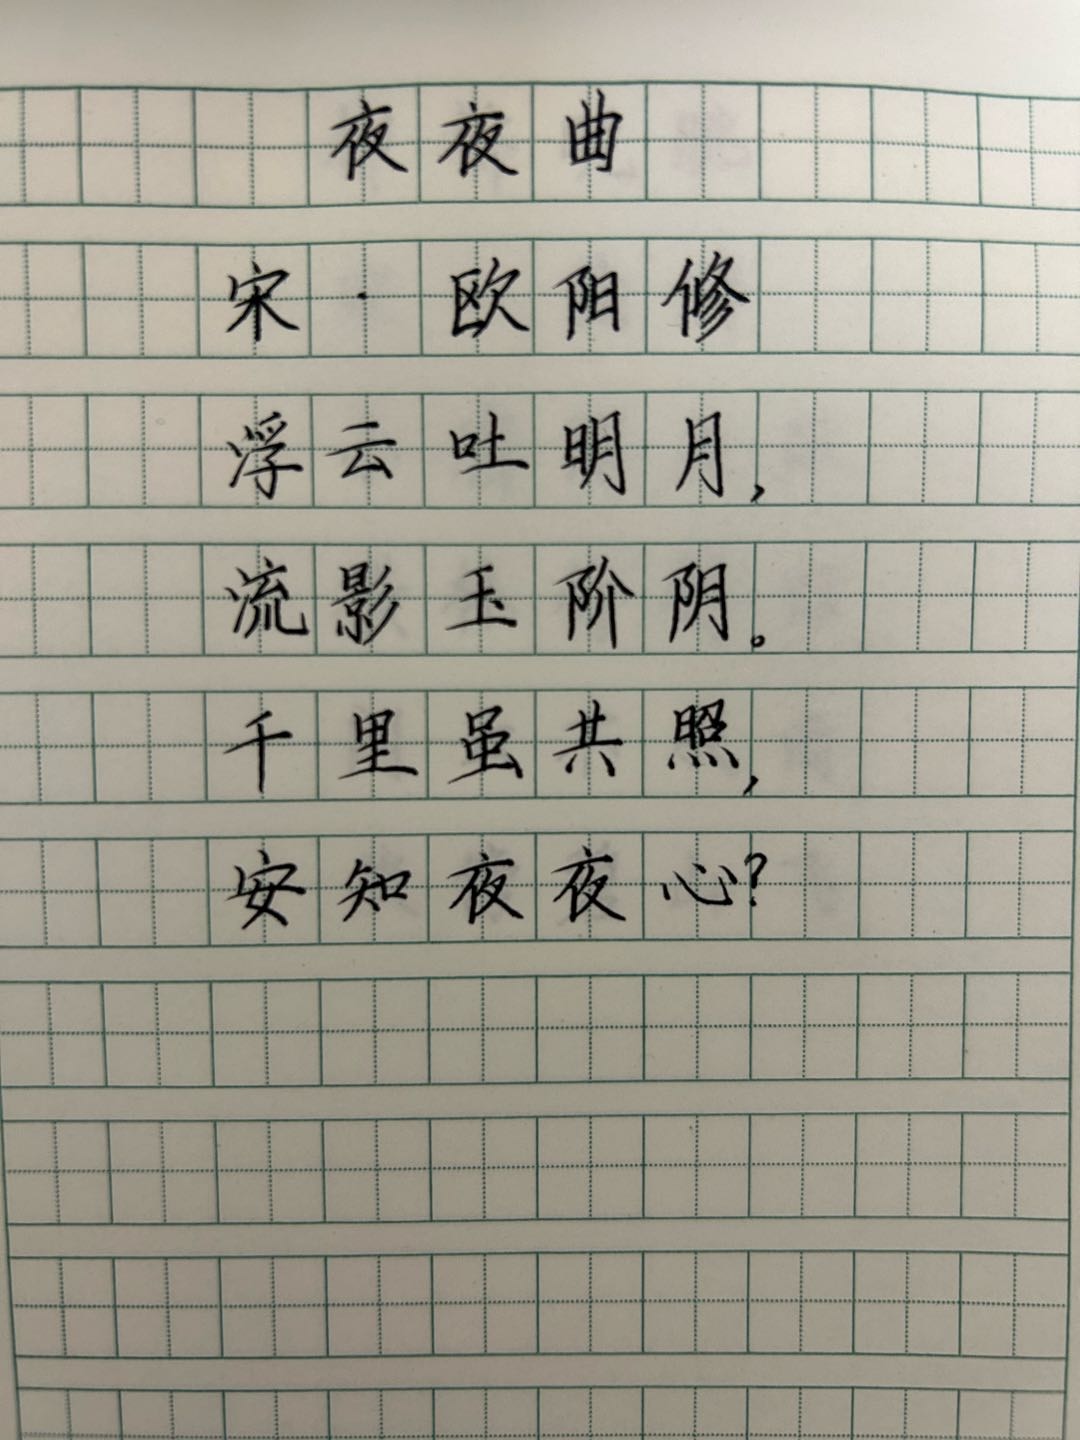 夜夜曲
宋·欧阳修
浮云吐明月,
流影玉阶阴。
千里虽共照,
安知夜夜心?